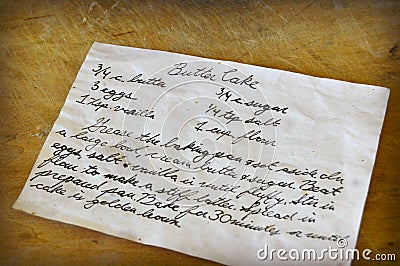 Butter Cake
3/4 c butter 3/4 c sugar
3 eggs 1/4 tsp salt
1 tsp vanilla 1 cup flour
Grease the baking pan and set aside. In
a large bowl cream butter & sugar. Beat
eggs, salt & vanilla in until fluffy. Stir in
flour to make a stiff batter. Spread in
prepared pan. Bake for 30 minutes or until
cake is golden brown
dreamstime.com